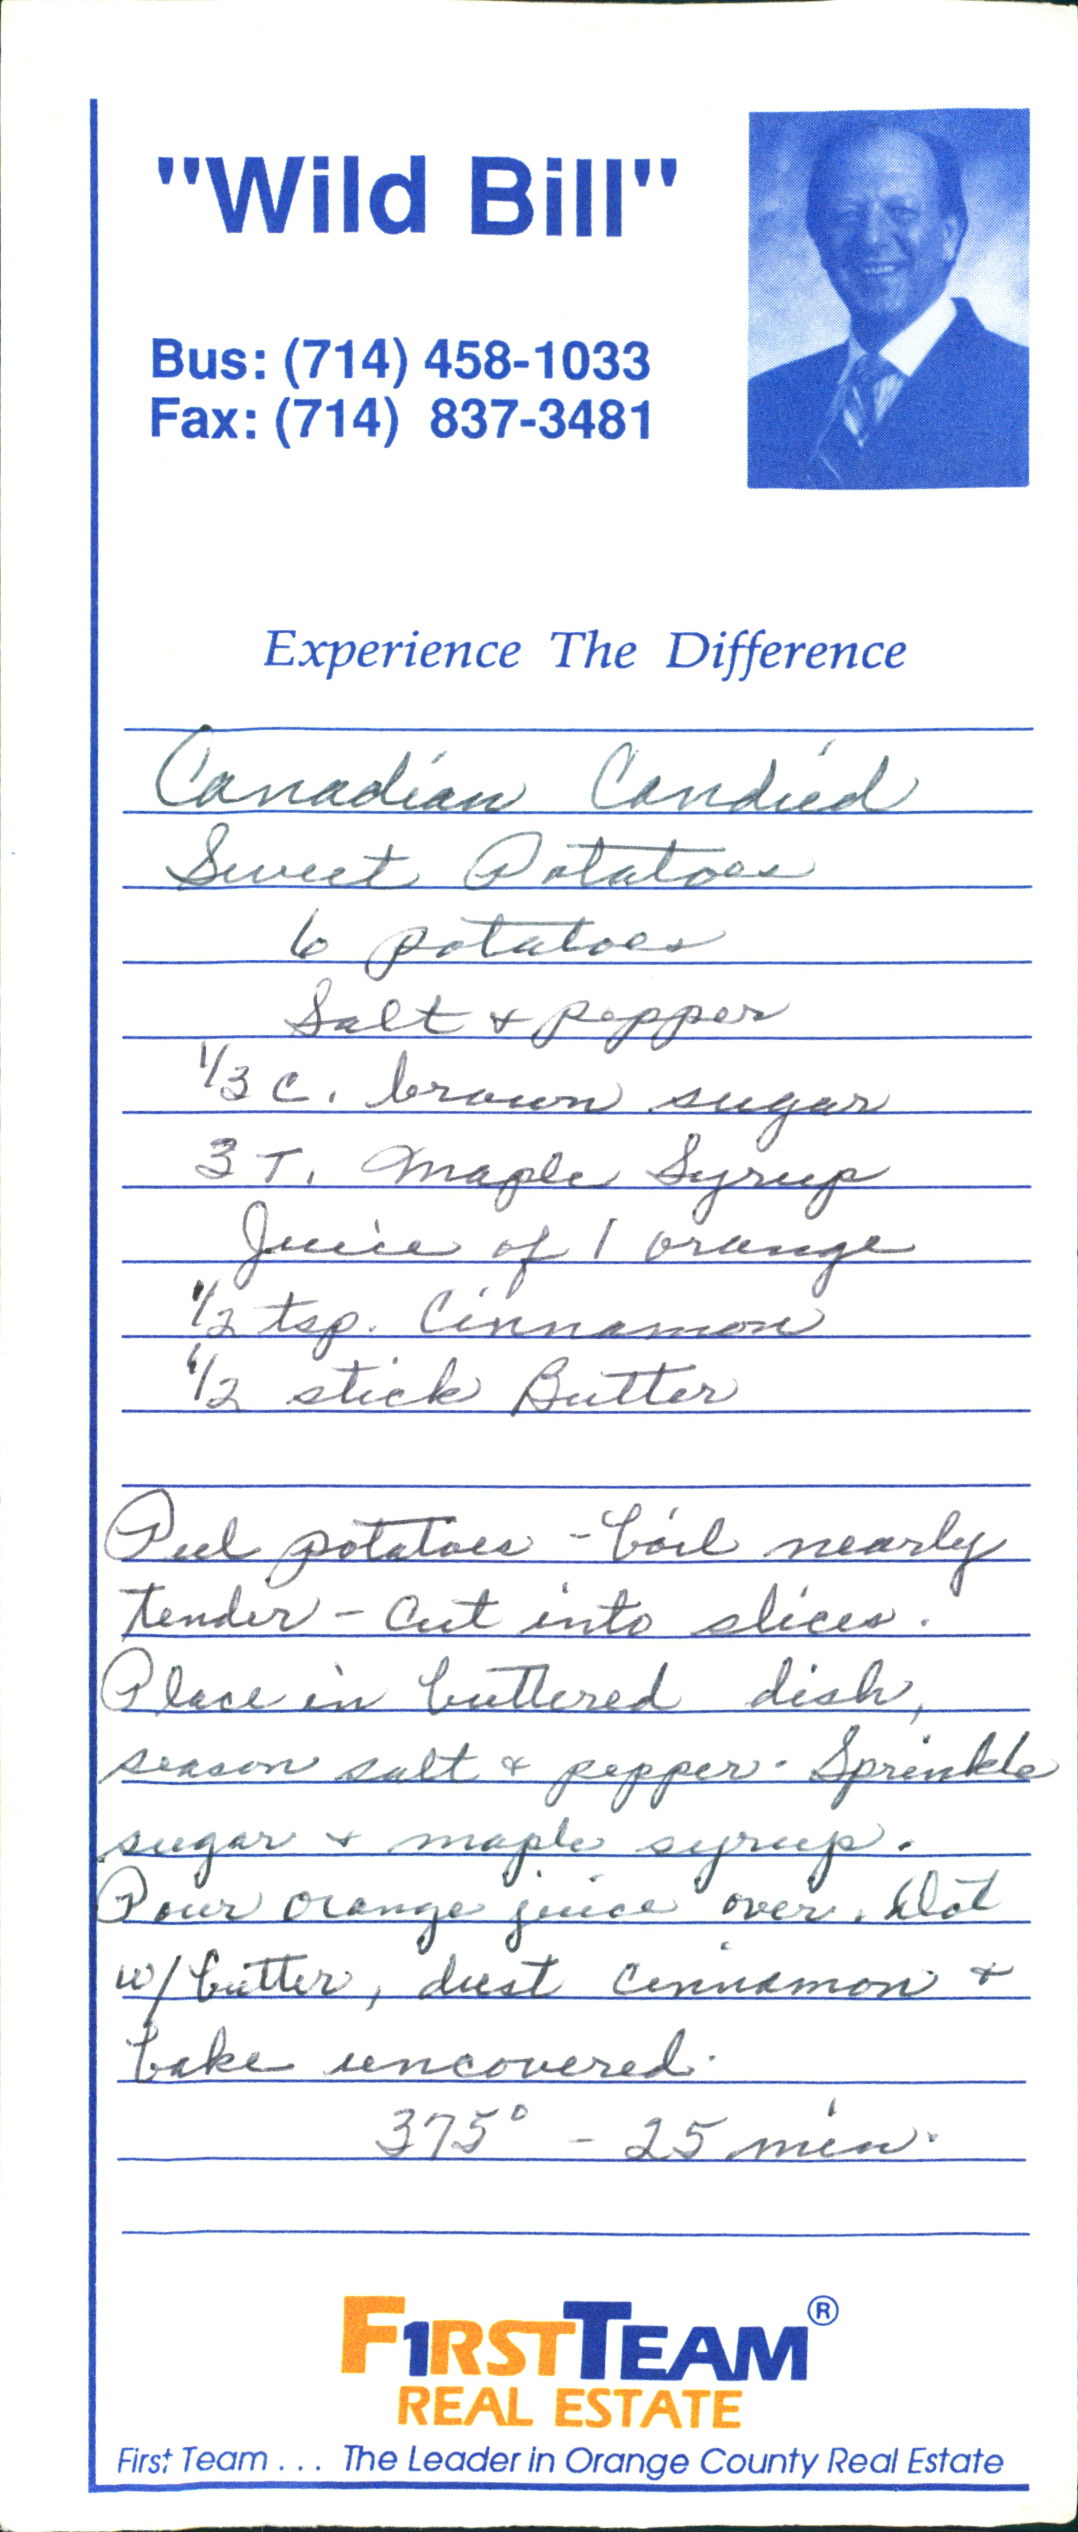 "Wild Bill"
Bus: (714) 458-1033
Fax: (714) 837-3481
Experience The Difference
Canadian Candied
Sweet Potatoes
6 potatoes
Salt + pepper
1/3 c. brown sugar
3 T. Maple Syrup
Juice of 1 orange
1/2 tsp. Cinnamon
1/2 stick Butter
Peel potatoes - boil nearly
tender - cut into slices.
Place in buttered dish,
season salt & pepper. Sprinkle
sugar + maple syrup.
Pour orange juice over. Dot
w/ butter, dust cinnamon +
bake uncovered.
375° - 25 min.
FIRST TEAM®
REAL ESTATE
First Team . . . The Leader in Orange County Real Estate